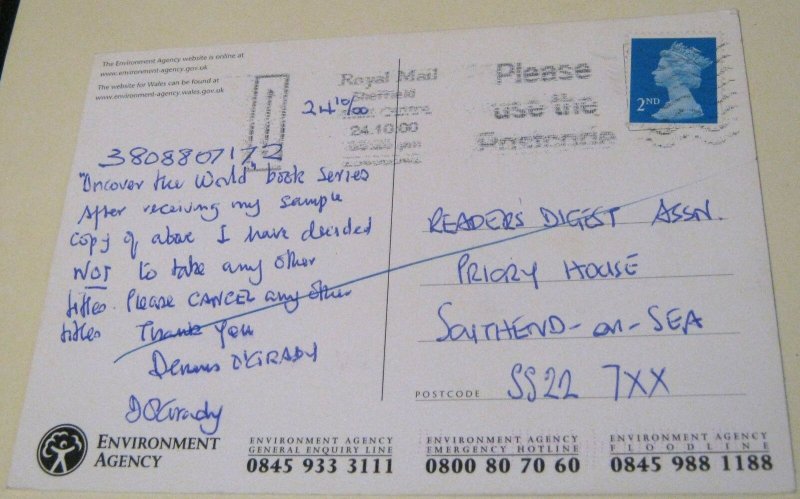 The Environment Agency website is online at
www.environment-agency.gov.uk
The website for Wales can be found at
www.environment-agency.wales.gov.uk
24 10/00
3808807172
"Uncover the World" book series
After receiving my sample
copy of above I have decided
NOT to take any other
titles. Please CANCEL any other
titles Thank You
Dennis O'GRADY
DO'Grady
Royal Mail
Sheffield
Mail Centre
24.10.00
Please
use the
Postcode
2ND
READER'S DIGEST ASSN.
PRIORY HOUSE
SOUTHEND-on-SEA
POSTCODE SS22 7XX
ENVIRONMENT
AGENCY
ENVIRONMENT AGENCY
GENERAL ENQUIRY LINE
0845 933 3111
ENVIRONMENT AGENCY
EMERGENCY HOTLINE
0800 80 70 60
ENVIRONMENT AGENCY
FLOODLINE
0845 988 1188